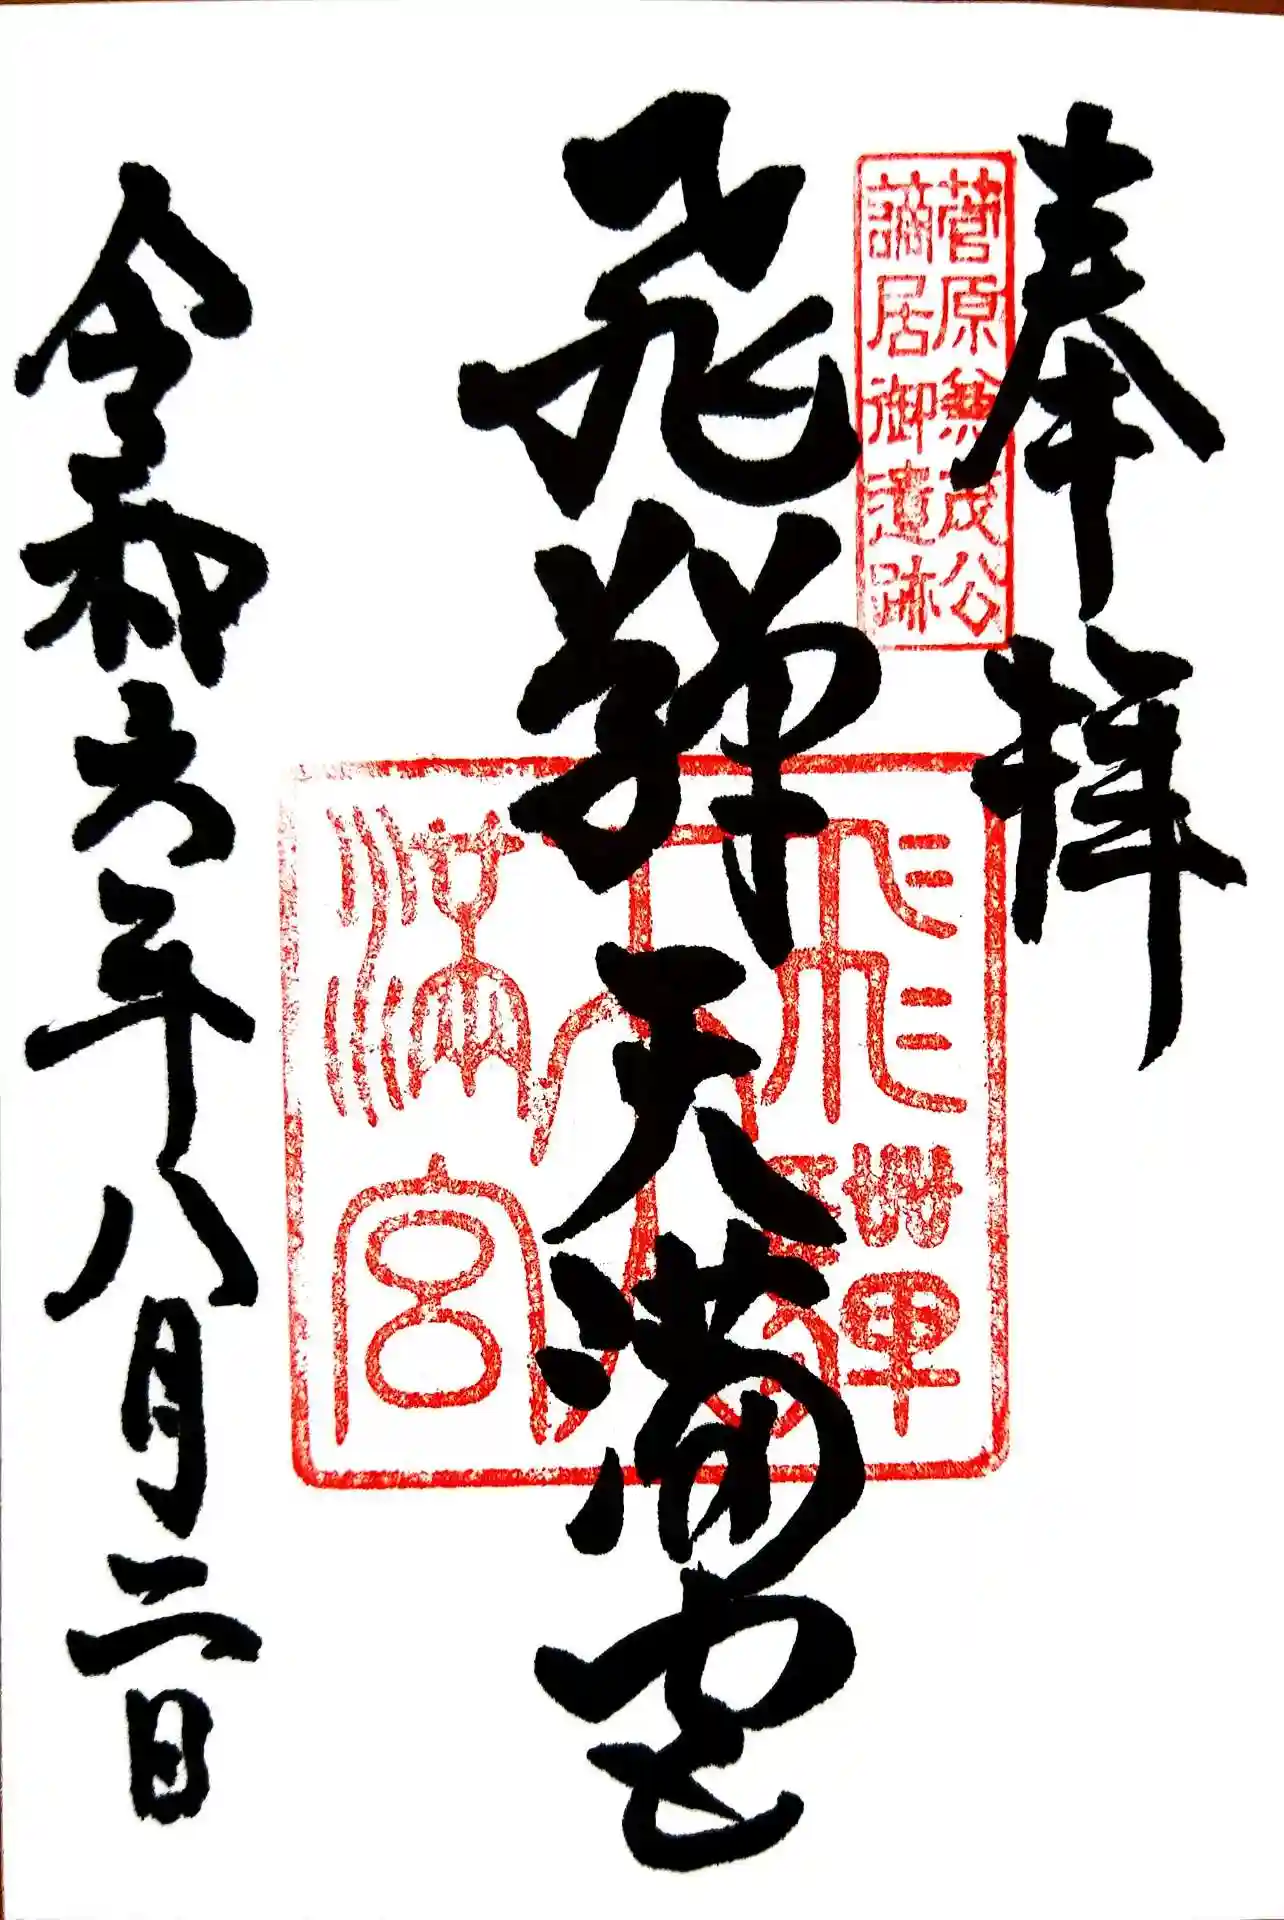 奉拝
菅原兼茂公
謫居御遺跡
飛騨天満宮
飛騨
天
満宮
令和六年八月二日